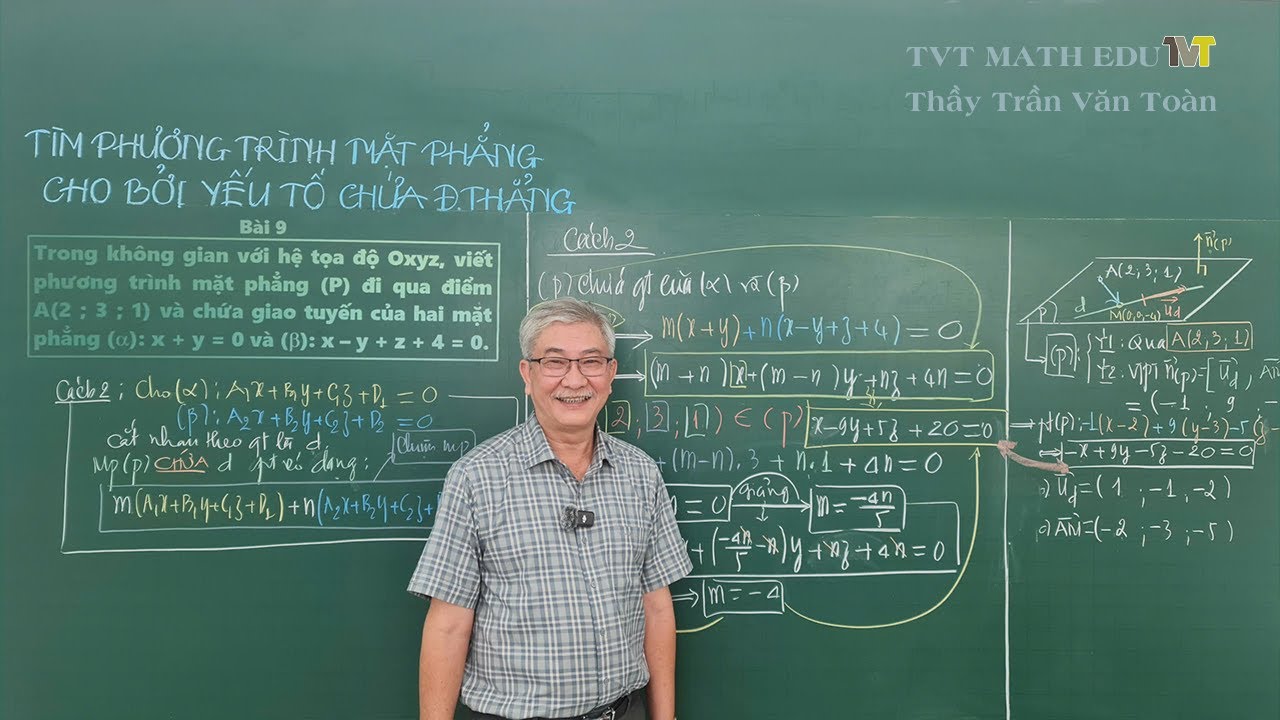 TVT MATH EDU TVT
Thầy Trần Văn Toàn
TÌM PHƯƠNG TRÌNH MẶT PHẲNG
CHO BỞI YẾU TỐ CHỨA Đ.THẲNG
Bài 9
Trong không gian với hệ tọa độ Oxyz, viết
phương trình mặt phẳng (P) đi qua điểm
A(2 ; 3 ; 1) và chứa giao tuyến của hai mặt
phẳng (α): x + y = 0 và (β): x – y + z + 4 = 0.
Cách 2 : Cho (α) : A₁x + B₁y + C₁z + D₁ = 0
(β) : A₂x + B₂y + C₂z + D₂ = 0
Cắt nhau theo gt là d.
Mp(P) CHỨA d pt có dạng :
m(A₁x+B₁y+C₁z+D₁)+n(A₂x+B₂y+C₂z+
Cách 2
(P) chứa gt của (α) và (β)
→ m(x+y)+n(x-y+z+4) = 0
→ (m+n)x+(m-n)y+nz+4n=0
2 ; 3 ; 1) ∈ (P)
x-9y+5z+20=0
+(m-n).3 + n.1 + 4n = 0
= 0 → m = -4n/5
+(-4n/5 - n)y + nz + 4n = 0
⇒ m = -4
n⃗(P)
A(2 ; 3 ; 1)
P) d M(0,0,-4) u⃗d
(P) : { Y1 : Qua A(2 ; 3 ; 1)
Y2 : VTPT n⃗(P)=[u⃗d ,
= (-1 ; 9
⇒ pt(P) : -1(x-2)+9(y-3)-5(z-
⇔ -x+9y-5z-20=0
u⃗d=(1 ; -1 ; -2)
AM⃗=(-2 ; -3 ; -5)